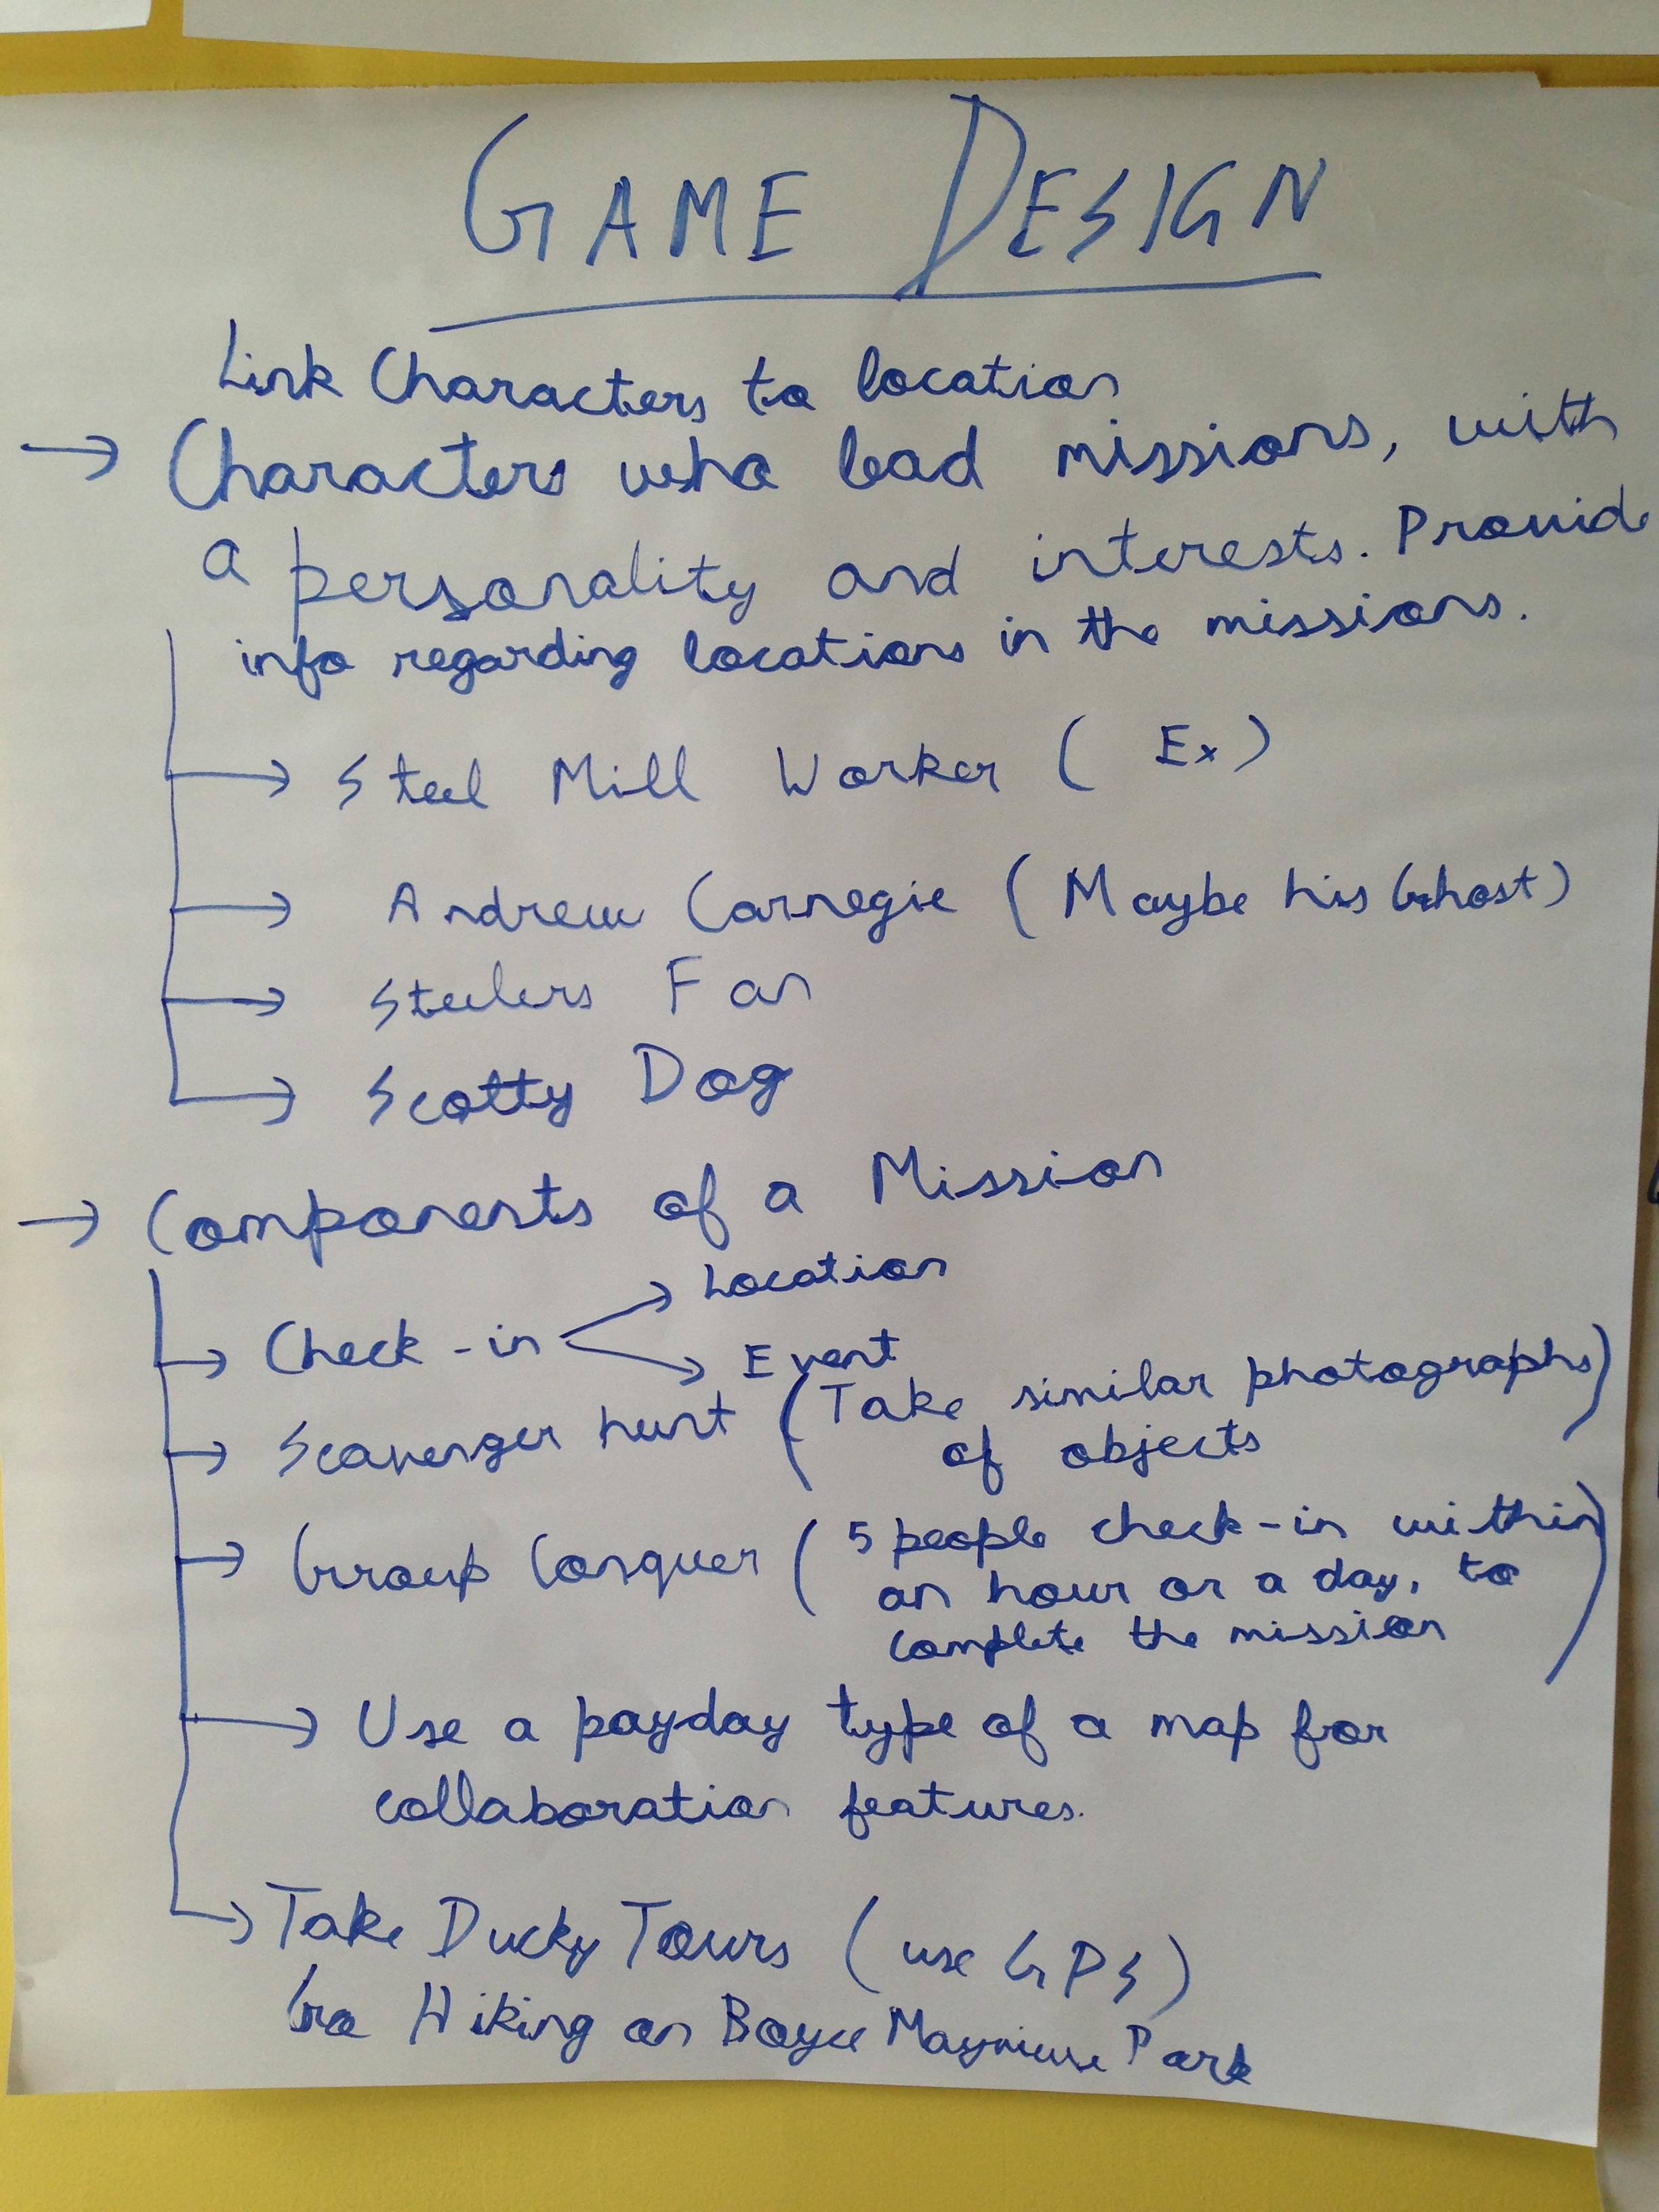 GAME DESIGN
Link Characters to location
→ Characters who lead missions, with
a personality and interests. Provide
info regarding locations in the missions.
→ Steel Mill Worker ( Ex)
→ Andrew Carnegie (Maybe his Ghost)
→ Steelers Fan
→ Scotty Dog
→ Components of a Mission
→ Location
→ Check-in
→ Event
→ Scavenger hunt (Take similar photographs)
of objects
→ Group Conquer ( 5 people check-in within
an hour or a day, to
complete the mission )
→ Use a payday type of a map for
collaboration features.
→ Take Ducky Tours (use GPS)
Go Hiking on Boyce Mayview Park